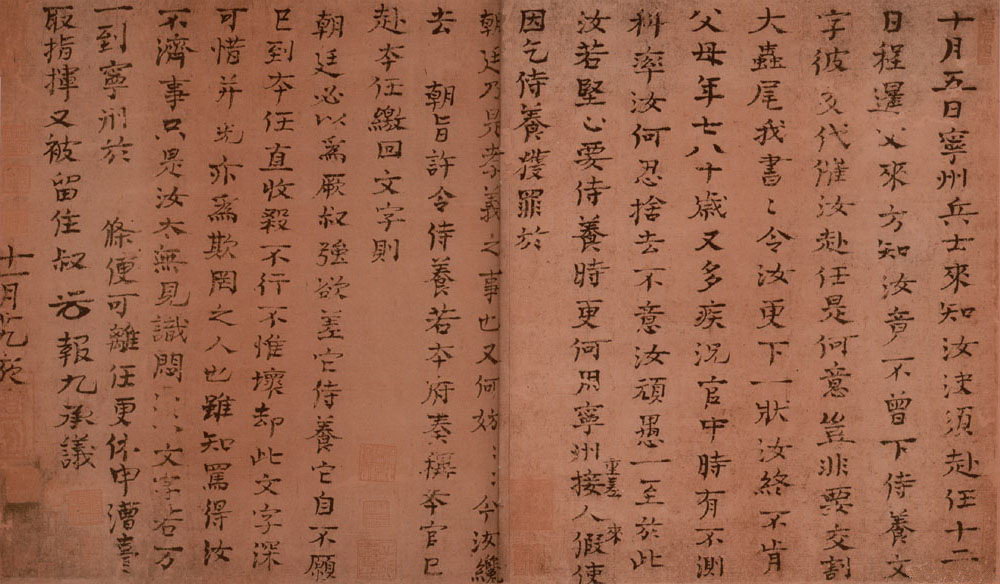 十月五日寧州兵士來知汝決須赴任十二
日程暹父來方知汝竟不曾下侍養文
字彼交代催汝赴任是何意豈非要交割
大蟲尾我書〻令汝更下一狀汝終不肯
父母年七八十歲又多疾況官中時有不測
科率汝何忍捨去不意汝頑愚一至於此
汝若堅心要侍養時更何用寧州重差接人來假使
因乞侍養獲罪於
朝廷乃是孝義之事也又何妨〻今汝纔
去 朝旨許令侍養若本府奏稱本官已
赴本任繳回文字則
朝廷必以為厥叔強欲差它侍養它自不願
已到本任直收殺不行不惟壞却此文字深
可惜并光亦為欺罔之人也雖知罵得汝
不濟事只是汝太無見識悶〻文字若万
一到寧州於 條便可離任更休申漕臺
取指揮又被留住叔 光 報九承議